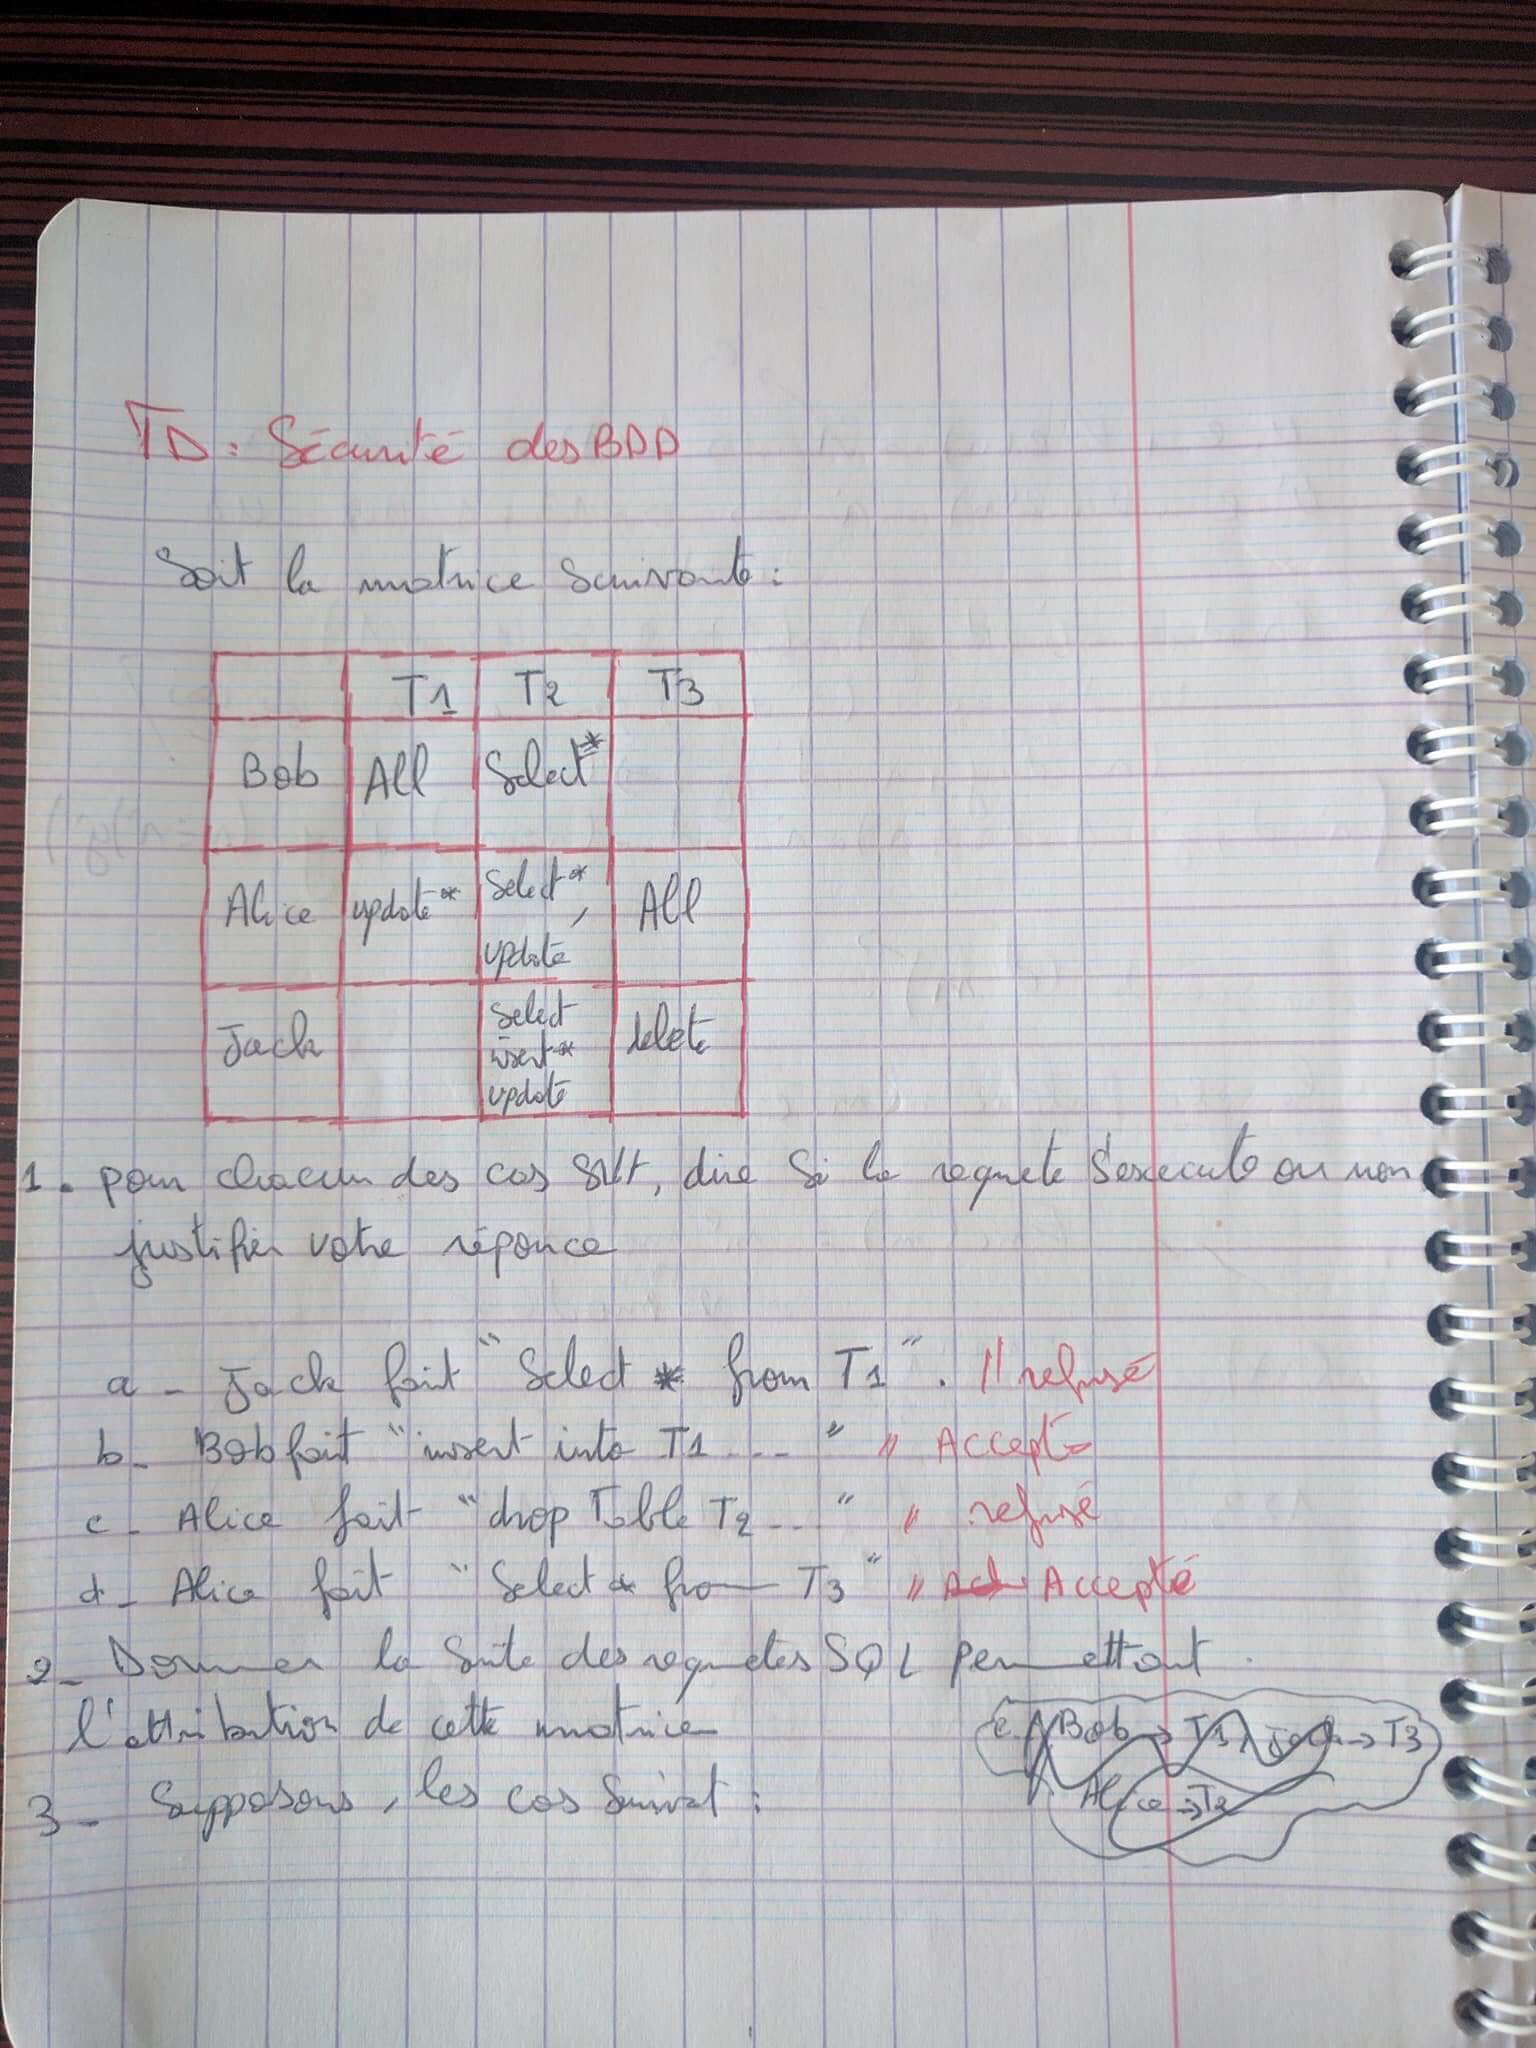 TD: Sécurité des BDD
Soit la matrice suivante:
T1 T2 T3
Bob All Select*
Alice update* Select*, update All
Jack Select insert* update delete
1. pour chacun des cas svt, dire si la requete s'execute ou non
justifier votre réponce
a - Jack fait "Select * from T1". // refusé
b - Bob fait "insert into T1 ...." // Accepté
c - Alice fait "drop Table T2 ..." // refusé
d - Alice fait "Select * from T3" // Accepté
2 - Donner la suite des requetes SQL permettant
l'attribution de cette matrice
Bob → T1, Jack → T3
Alice → T2
3 - Supposons, les cas suivat :